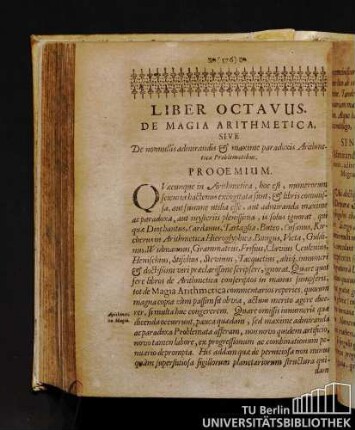 (576)
LIBER OCTAVUS.
DE MAGIA ARITHMETICA,
SIVE
De nonnullis admirandis & maxime paradoxis Arithme-
ticæ Problematibus.
PROOEMIUM.
Quæcunque in Arithmetica, hoc est, numerorum
scientia hactenus excogitata sunt, & libris
aut summe utilia esse, aut admiranda maxime
ac paradoxa, aut mysteriis plenissima, is solus ignorat, qui
quæ Diophantus, Cardanus, Tartaglia, Buteo, Cusanus, Kir-
cherus in Arithmetica Hieroglyphica, Bungus, Vieta, Guldi-
nus, Grammateus, Frisius, Clavius, Ceulenius,
Henischius, Stifelius, Stevinus, Jacquetius, aliique innumeri
& doctissimi viri præclarissime scripsere, ignorat. Quare quum
libros de Arithmetica conscriptos in manus
tot de Magia Arithmetica commentarios reperies, quorum
magna copia cum passim sit obvia, actum merito agere dice-
rer, si multa huc congererem. Quare omissis innumeris quæ
dicenda occurrunt, pauca quædam, sed maxime admiranda
ac paradoxa Problemata afferam, non nostro quidem artificio,
novo tamen labore, ex progressionum ac combinationum
nuario deprompta. His addam quæ de perniciosa non minus
quàm superstitiosa sigillorum planetariorum structura qui-
dam
Arithmeti-
ca Magia.
TU Berlin
UNIVERSITÄTSBIBLIOTHEK